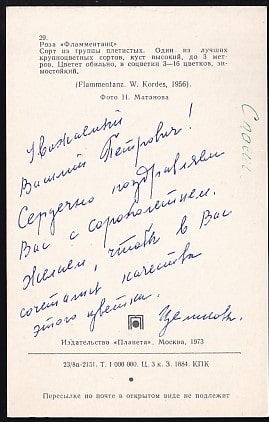 29.
Роза «Фламментанц»
Сорт из группы плетистых. Один из лучших
крупноцветных сортов, куст высокий, до 3 мет-
ров. Цветет обильно, в соцветии 3—16 цветков, зи-
мостойкий.
(Flammentanz. W. Kordes, 1956).
Фото Н. Матанова
Уважаемый
Василий Петрович!
Сердечно поздравляем
Вас с сорокалетием.
Желаем, чтобы в Вас
сочетались качества
этого цветка.
Издательство «Планета». Москва, 1973
23/8п-2151. Т. 1 000 000. Ц. 3 к. З. 1884. КПК
Пересылке по почте в открытом виде не подлежит